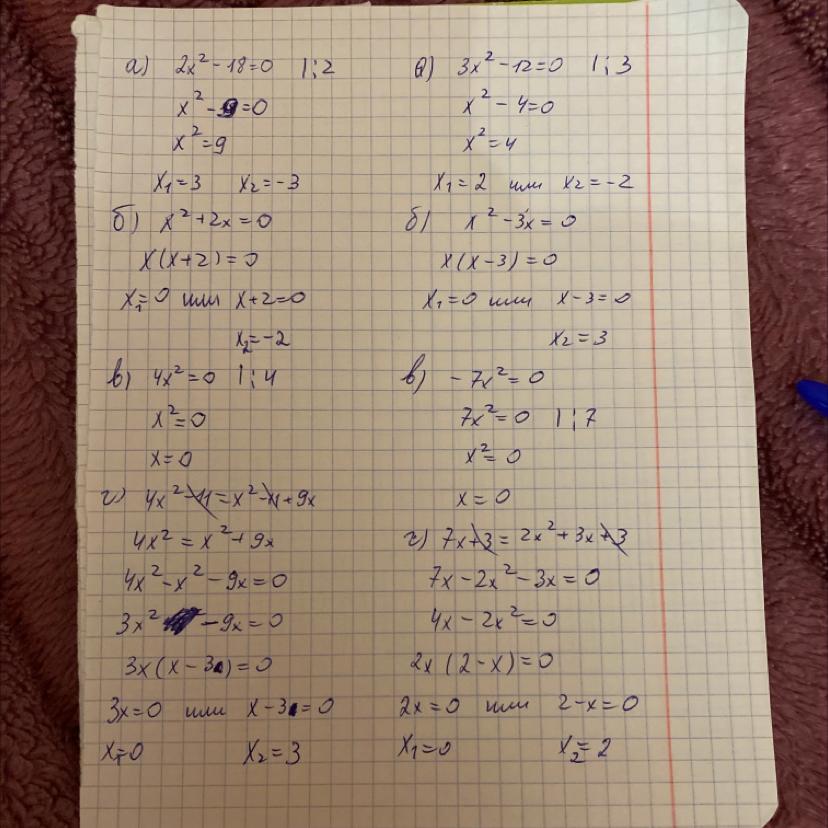 а) 2x² - 18 = 0 |:2
x² - 9 = 0
x² = 9
x₁ = 3 x₂ = -3
б) x² + 2x = 0
x(x+2) = 0
x₁ = 0 или x+2 = 0
x₂ = -2
в) 4x² = 0 |:4
x² = 0
x = 0
г) 4x² - 11 = x² - 11 + 9x
4x² = x² + 9x
4x² - x² - 9x = 0
3x² - 9x = 0
3x(x - 3) = 0
3x = 0 или x - 3 = 0
x₁ = 0 x₂ = 3
а) 3x² - 12 = 0 |:3
x² - 4 = 0
x² = 4
x₁ = 2 или x₂ = -2
б) x² - 3x = 0
x(x-3) = 0
x₁ = 0 или x - 3 = 0
x₂ = 3
в) -7x² = 0
7x² = 0 |:7
x² = 0
x = 0
г) 7x + 3 = 2x² + 3x + 3
7x - 2x² - 3x = 0
4x - 2x² = 0
2x(2 - x) = 0
2x = 0 или 2 - x = 0
x₁ = 0 x₂ = 2